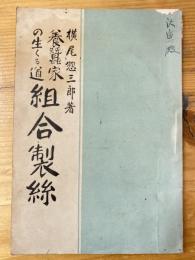 横尾惣三郎著
養蚕家
の生くる道
組合製絲